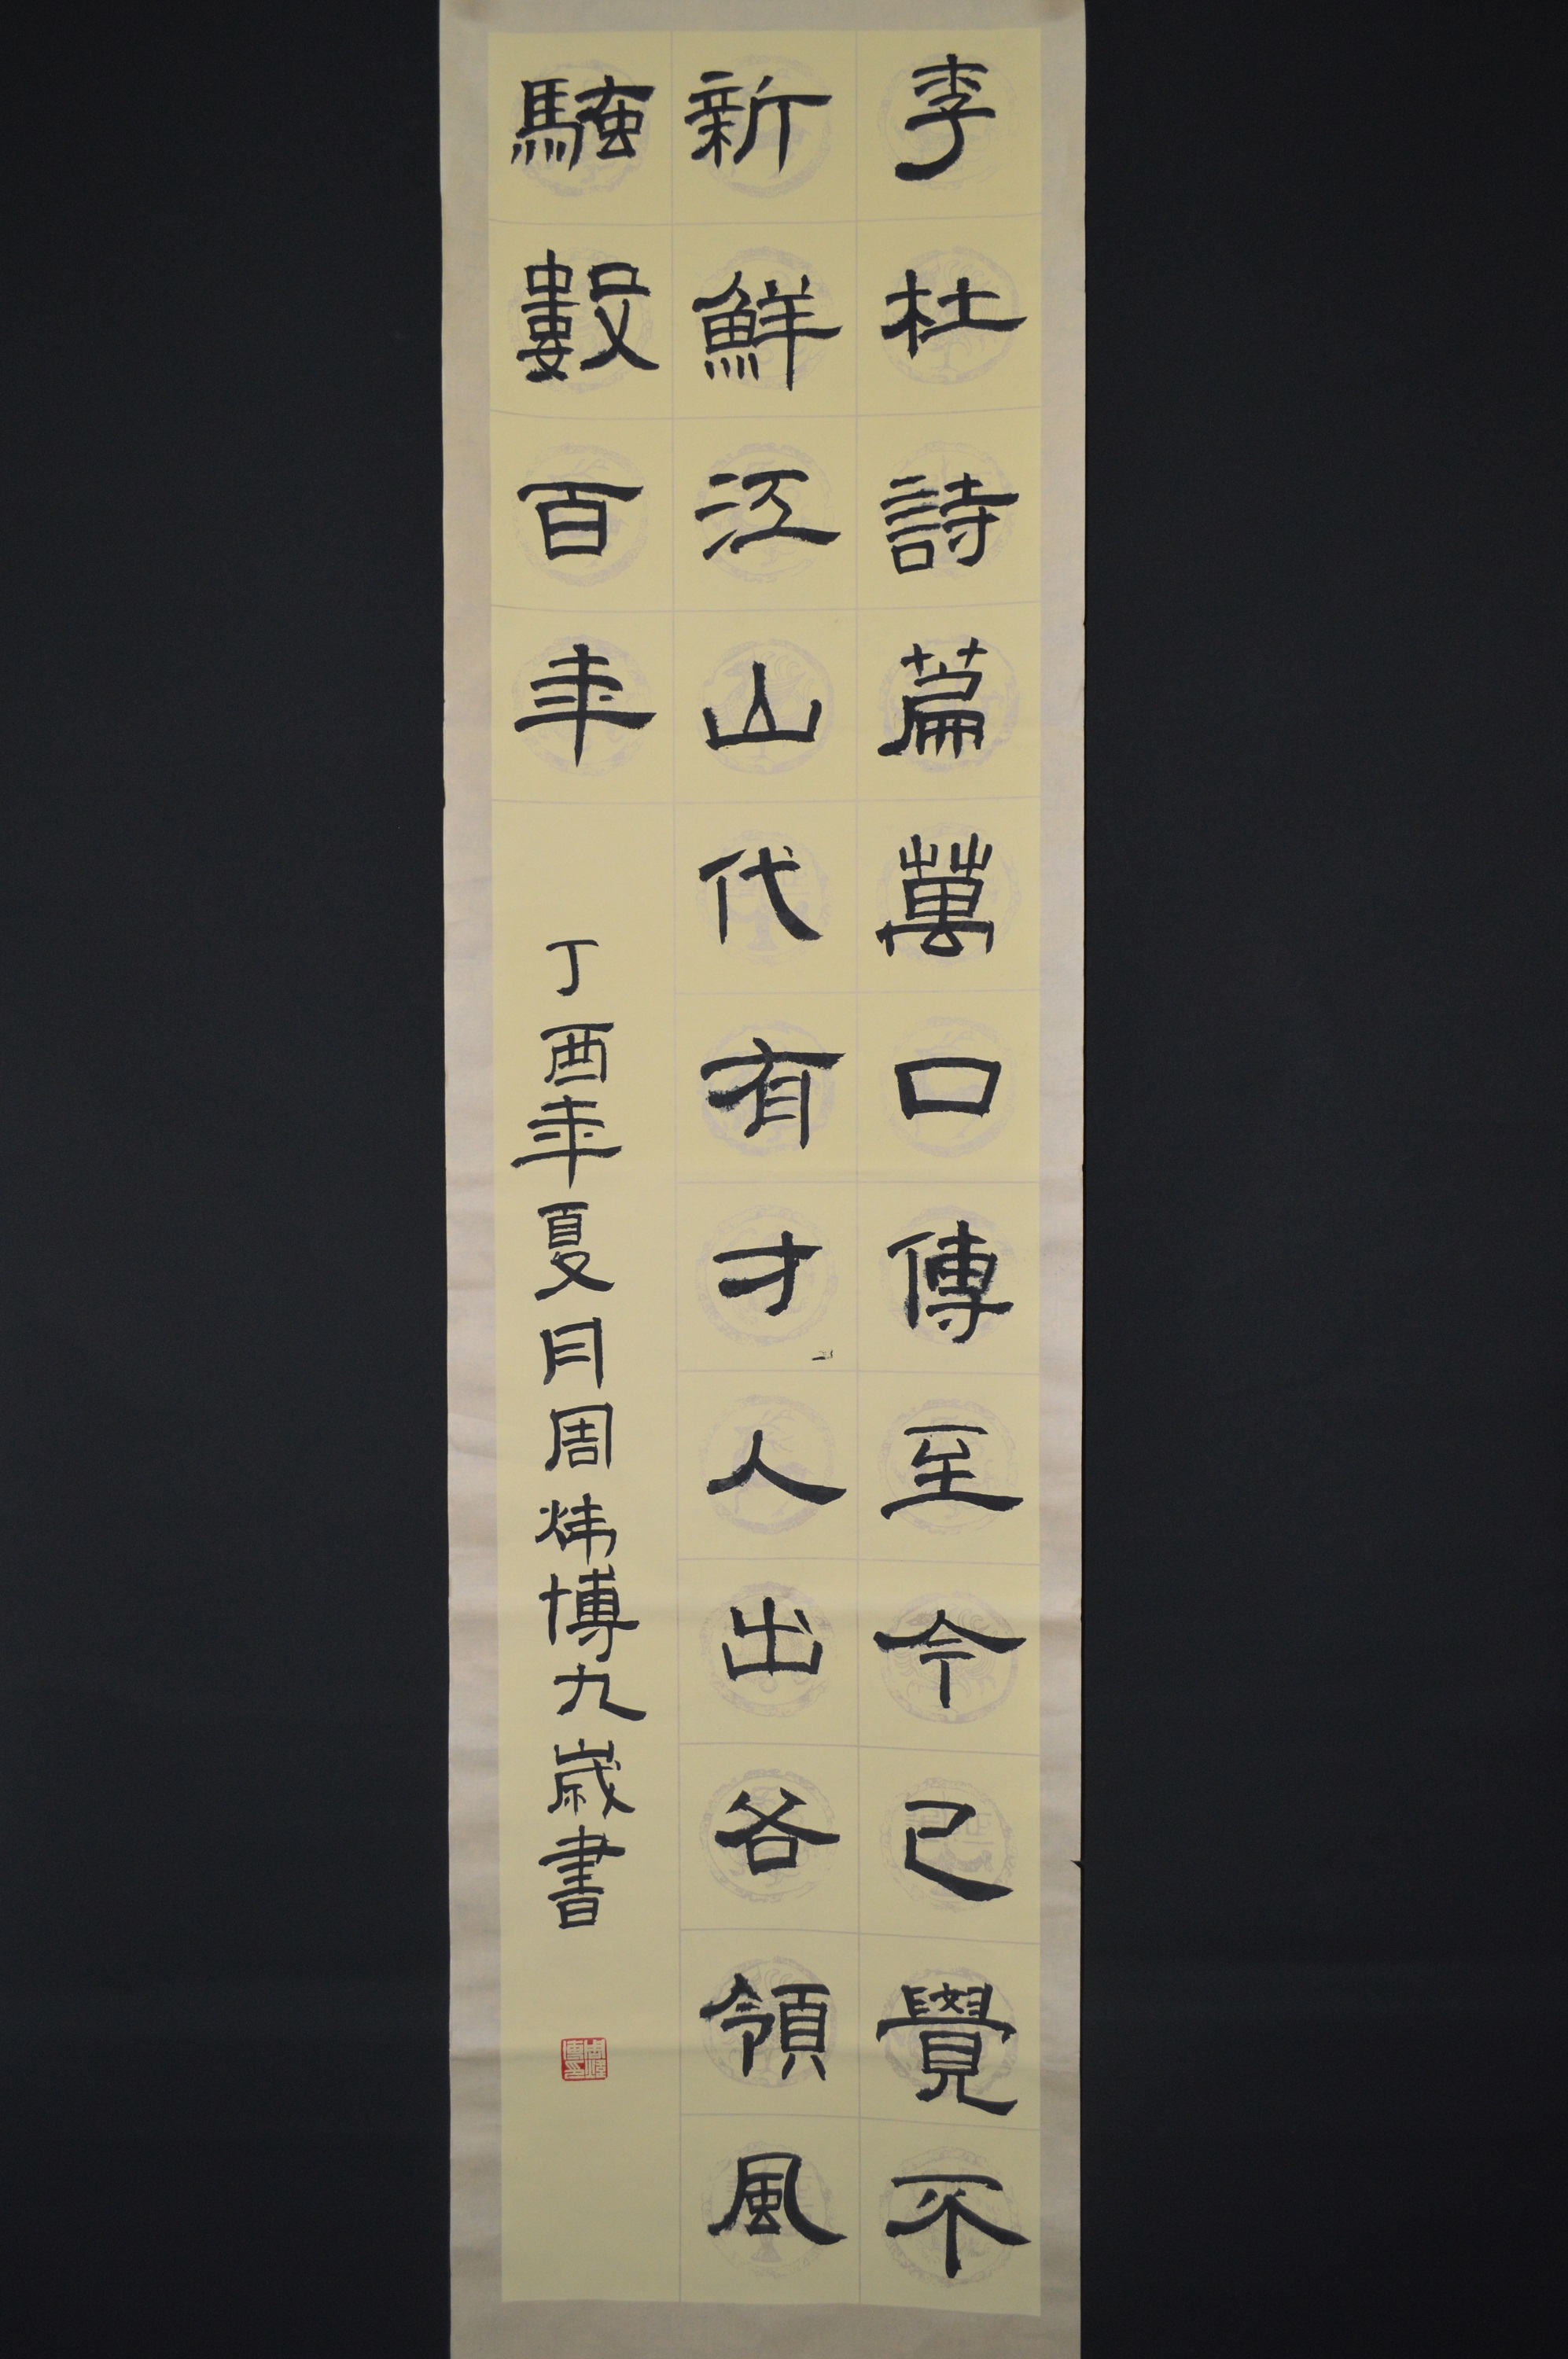 李杜詩篇萬口傳至今已覺不
新鮮江山代有才人出各領風
騷數百年
丁酉年夏月周炜博九歲書